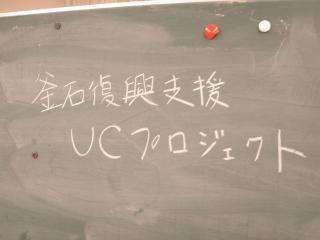 釜石復興支援
UCプロジェクト